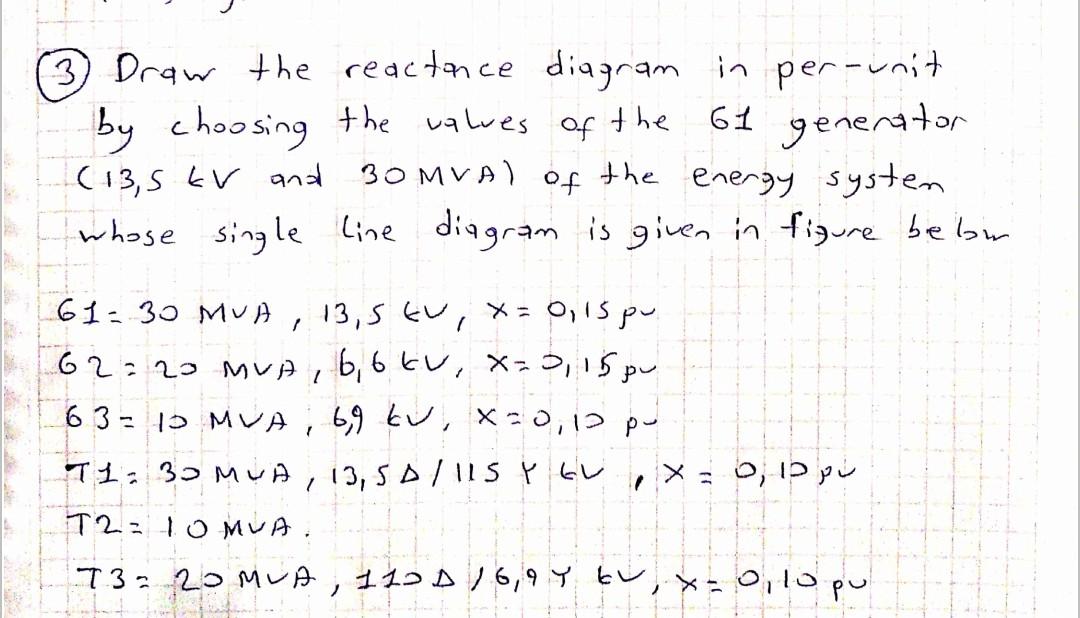 3 Draw the reactance diagram in per-unit
by choosing the values of the G1 generator
(13,5 kV and 30 MVA) of the energy system
whose single line diagram is given in figure below
G1= 30 MVA, 13,5 kV, X= 0,15 pu
G2= 20 MVA, 6,6 kV, X= 0,15 pu
G3= 10 MVA, 6,9 kV, X=0,10 pu
T1= 30 MVA, 13,5 Δ/115 Y kV, X= 0,10 pu
T2= 10 MVA.
T3= 20 MVA, 110 Δ/6,9 Y kV, X= 0,10 pu